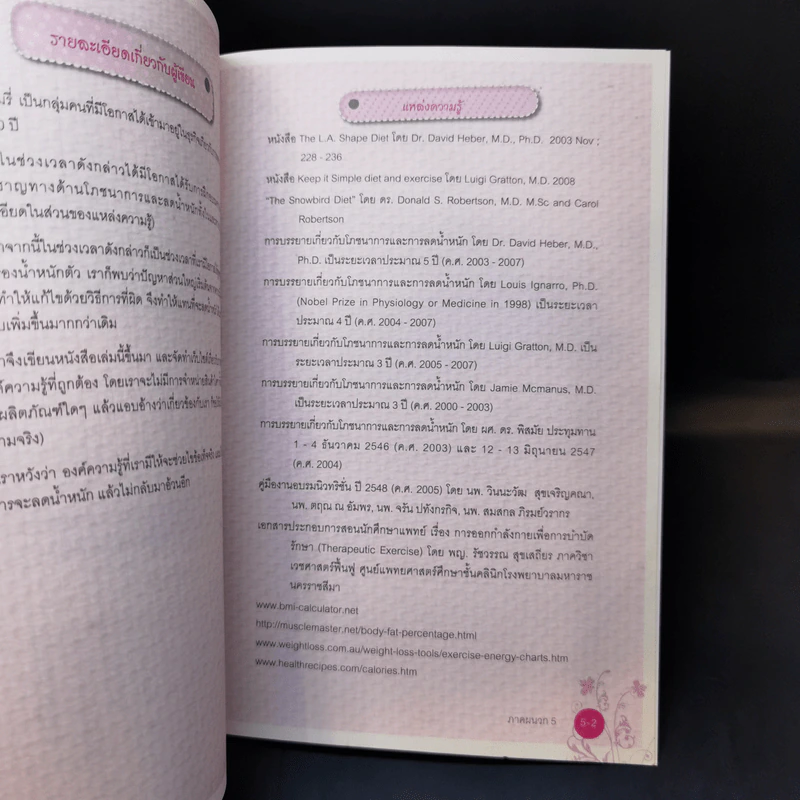 รายละเอียดเกี่ยวกับผู้เขียน
เป็นกลุ่มคนที่มีโอกาสได้เข้ามาอยู่ใน
ปี
ในช่วงเวลาดังกล่าวได้มีโอกาสได้รับการ
ทางด้านโภชนาการและลดน้ำหนัก
ในส่วนของแหล่งความรู้)
จากนี้ในช่วงเวลาดังกล่าวก็เป็นช่วงเวลาที่เรามีโอกาส
น้ำหนักตัว เราก็พบว่าปัญหาส่วนใหญ่
ทำให้แก้ไขด้วยวิธีการที่ผิด จึงทำให้แทนที่จะ
เพิ่มขึ้นมากกว่าเดิม
จึงเขียนหนังสือเล่มนี้ขึ้นมา และจัดทำเว็บไซต์
ความรู้ที่ถูกต้อง โดยเราจะไม่มีการจำหน่าย
ผลิตภัณฑ์ใดๆ แล้วแอบอ้างว่าเกี่ยวข้องกับเรา
จริง)
เราหวังว่า องค์ความรู้ที่เรามีให้จะช่วย
การจะลดน้ำหนัก แล้วไม่กลับมาอ้วนอีก
แหล่งความรู้
หนังสือ The L.A. Shape Diet โดย Dr. David Heber, M.D., Ph.D. 2003 Nov ;
228 - 236
หนังสือ Keep it Simple diet and exercise โดย Luigi Gratton, M.D. 2008
"The Snowbird Diet" โดย ดร. Donald S. Robertson, M.D. M.Sc and Carol
Robertson
การบรรยายเกี่ยวกับโภชนาการและการลดน้ำหนัก โดย Dr. David Heber, M.D.,
Ph.D. เป็นระยะเวลาประมาณ 5 ปี (ค.ศ. 2003 - 2007)
การบรรยายเกี่ยวกับโภชนาการและการลดน้ำหนัก โดย Louis Ignarro, Ph.D.
(Nobel Prize in Physiology or Medicine in 1998) เป็นระยะเวลา
ประมาณ 4 ปี (ค.ศ. 2004 - 2007)
การบรรยายเกี่ยวกับโภชนาการและการลดน้ำหนัก โดย Luigi Gratton, M.D. เป็น
ระยะเวลาประมาณ 3 ปี (ค.ศ. 2005 - 2007)
การบรรยายเกี่ยวกับโภชนาการและการลดน้ำหนัก โดย Jamie Mcmanus, M.D.
เป็นระยะเวลาประมาณ 3 ปี (ค.ศ. 2000 - 2003)
การบรรยายเกี่ยวกับโภชนาการและการลดน้ำหนัก โดย ผศ. ดร. พิสมัย ประทุมทาน
1 - 4 ธันวาคม 2546 (ค.ศ. 2003) และ 12 - 13 มิถุนายน 2547
(ค.ศ. 2004)
คู่มืองานอบรมนิวทริชั่น ปี 2548 (ค.ศ. 2005) โดย นพ. วินนะวัฒ สุขเจริญคณา,
นพ. ตฤณ ณ อัมพร, นพ. จรัน ปทังกรกิจ, นพ. สมสกล ภิรมย์วรากร
เอกสารประกอบการสอนนักศึกษาแพทย์ เรื่อง การออกกำลังกายเพื่อการบำบัด
รักษา (Therapeutic Exercise) โดย พญ. รัชวรรณ สุขเสถียร ภาควิชา
เวชศาสตร์ฟื้นฟู ศูนย์แพทยศาสตร์ศึกษาชั้นคลินิกโรงพยาบาลมหาราช
นครราชสีมา
www.bmi-calculator.net
http://musclemaster.net/body-fat-percentage.html
www.weightloss.com.au/weight-loss-tools/exercise-energy-charts.htm
www.healthrecipes.com/calories.htm
ภาคผนวก 5
5-2